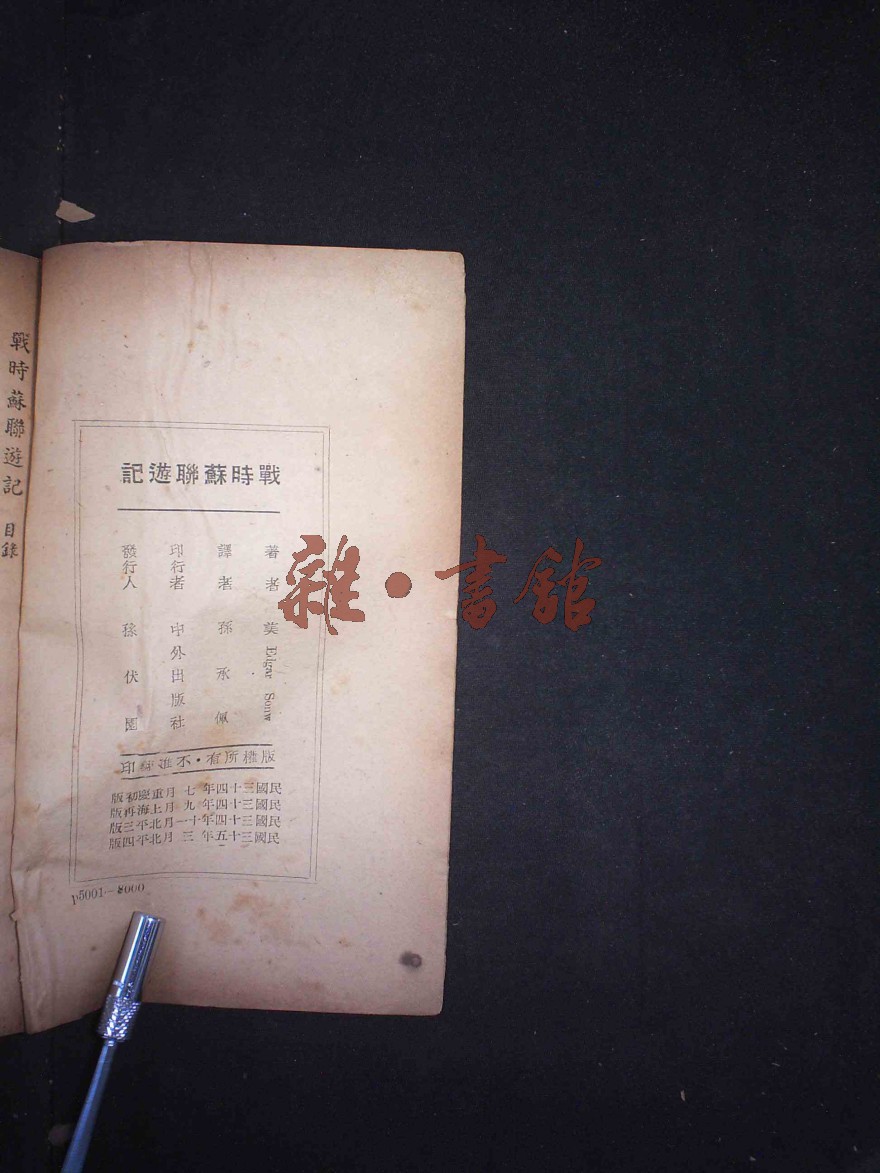 戰時蘇聯遊記
著者 美 Edgar Sonw
譯者 孫承佩
印行者 中外出版社
發行人 孫伏園
版權所有・不准翻印
民國三十四年七月重慶初版
民國三十四年九月上海再版
民國三十四年十一月北平三版
民國三十五年三月北平四版
p5001—8000
戰時蘇聯遊記 目錄
雜・書館